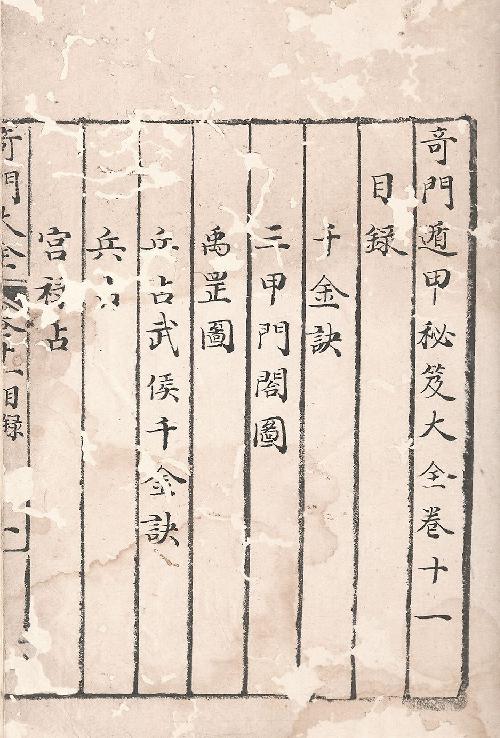 奇門遁甲秘笈大全卷十一
目錄
千金訣
三甲門閣圖
禹罡圖
兵占武侯千金訣
兵占
宮禄占
奇門大全 卷十一目録 一